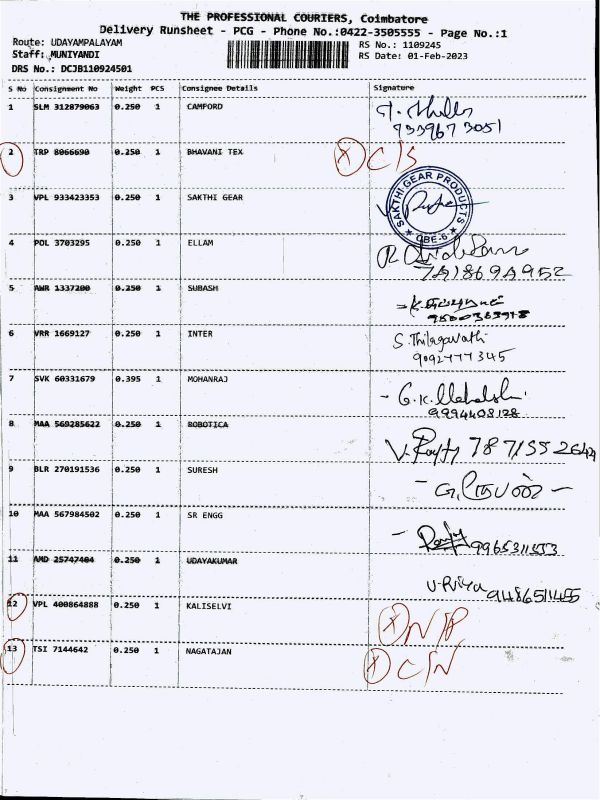 THE PROFESSIONAL COURIERS, Coimbatore
Delivery Runsheet - PCG - Phone No.:0422-3505555 - Page No.:1
Route: UDAYAMPALAYAM
RS No.: 1109245
Staff: MUNIYANDI
RS Date: 01-Feb-2023
DRS No.: DCJB110924501
S No Consignment No Weight PCS Consignee Details Signature
1 SLM 312879063 0.250 1 CAMFORD
9339673051
2 TRP 8066690 0.250 1 BHAVANI TEX X C/S
3 VPL 933423353 0.250 1 SAKTHI GEAR
SAKTHI GEAR PRODUCTS CBE-6.
4 POL 3703295 0.250 1 ELLAM
5 AWR 1337200 0.250 1 SUBASH
6 VRR 1669127 0.250 1 INTER S. Thilagavathi
9092777345
7 SVK 60331679 0.395 1 MOHANRAJ
9994408128
8 MAA 569285622 0.250 1 ROBOTICA
9 BLR 270191536 0.250 1 SURESH
10 MAA 567984502 0.250 1 SR ENGG
9965311553
11 AMD 25747404 0.250 1 UDAYAKUMAR V. Priya 9486511455
12 VPL 400864888 0.250 1 KALISELVI X
13 TSI 7144642 0.250 1 NAGATAJAN X C/N